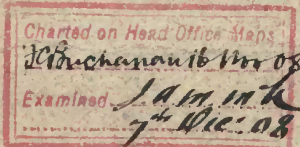 Charted on Head Office Maps
Buchanan 16 Nov 08
Examined
7th Dec. 08